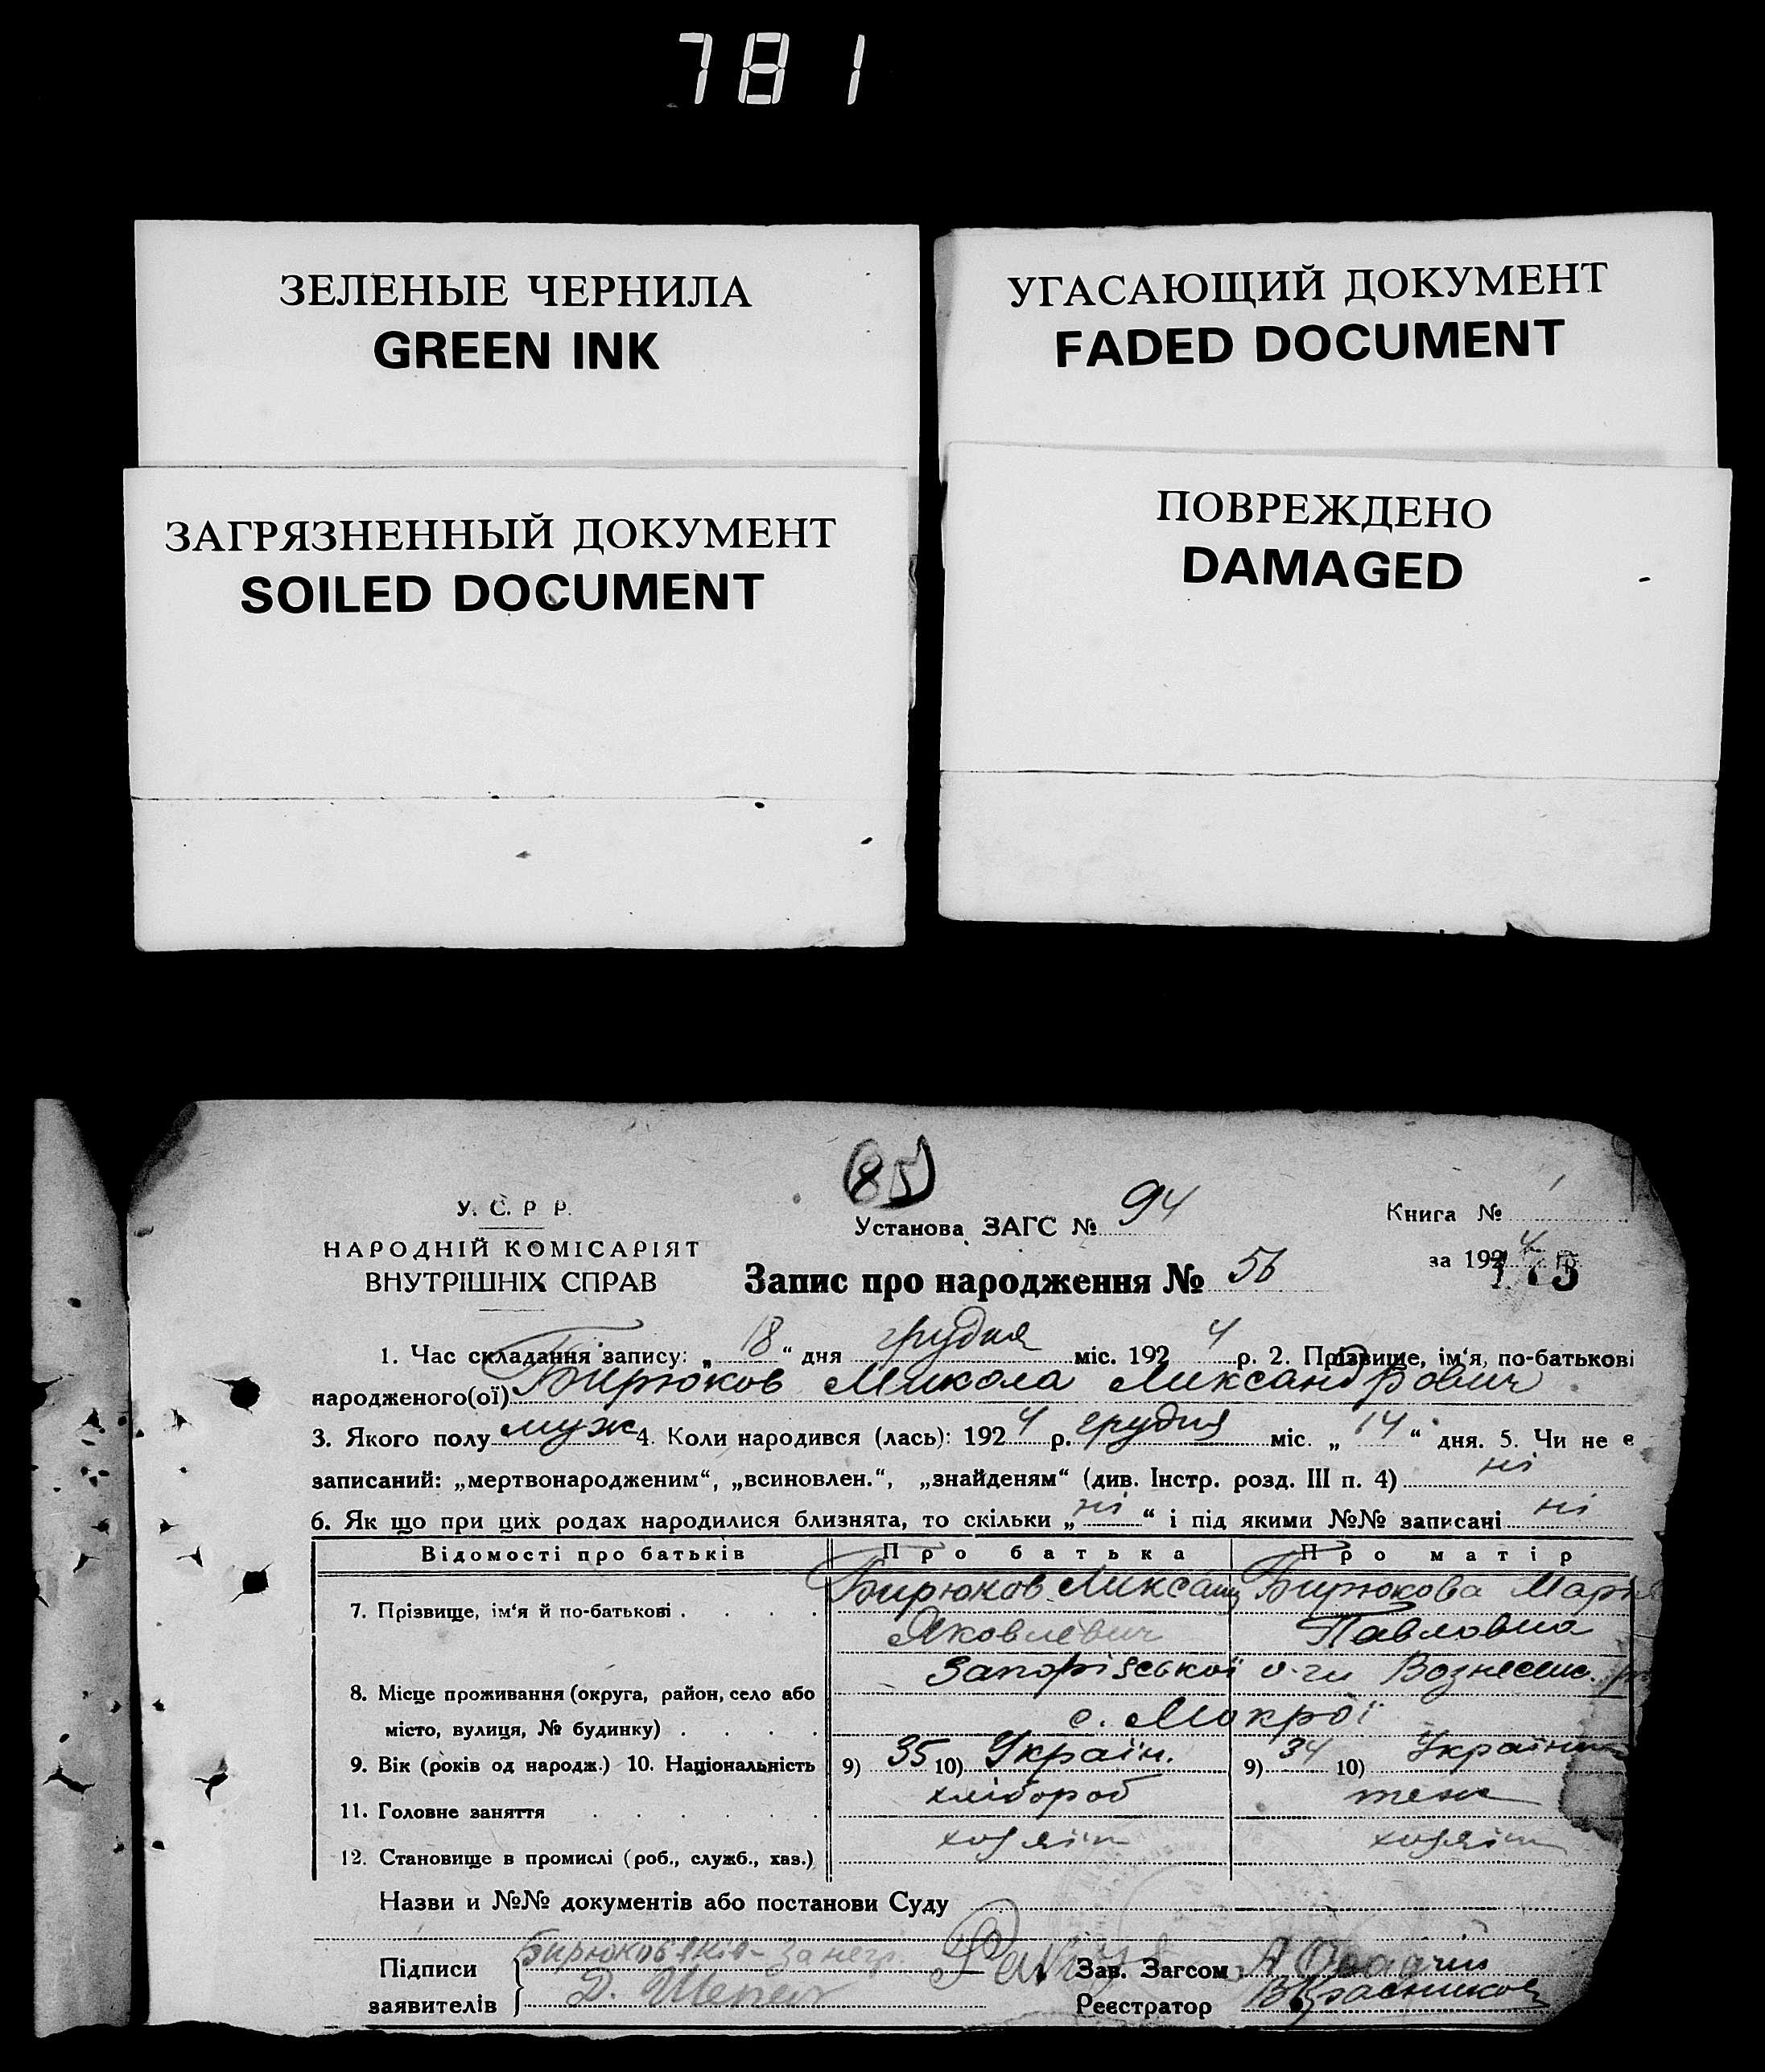 781
ЗЕЛЕНЫЕ ЧЕРНИЛА
GREEN INK
УГАСАЮЩИЙ ДОКУМЕНТ
FADED DOCUMENT
ЗАГРЯЗНЕННЫЙ ДОКУМЕНТ
SOILED DOCUMENT
ПОВРЕЖДЕНО
DAMAGED
85
У. С. Р Р.
НАРОДНІЙ КОМІСАРІЯТ
ВНУТРІШНІХ СПРАВ
Установа ЗАГС № 94
Запис про народження № 56
Книга №
за 1924 р.
1. Час складання запису: „18“ дня грудня міс. 1924 р. 2. Прізвище, ім‘я, по-батькові
народженого(ої) Бирюков Микола Ликсандрович
3. Якого полу муж 4. Коли народився (лась): 1924 р. грудня міс. „14“ дня. 5. Чи не є
записаний: „мертвонародженим“, „всиновлен.“, „знайденям“ (див. Інстр. розд. III п. 4) ні
6. Як що при цих родах народилися близнята, то скільки „ні“ і під якими №№ записані ні
Відомості про батьків Про батька Про матір
7. Прізвище, ім‘я й по-батькові . . . . Бирюков Бирюкова Марія
Яковлевич Павловна
Запорізської о-ги Вознесенс.
8. Місце проживання (округа, район, село або
місто, вулиця, № будинку) . . . . с. Мокрої
9. Вік (років од народж.) 10. Національність 9) 35 10) Україн. 9) 34 10)
11. Головне заняття . . . . . . хлібороб теж
12. Становище в промислі (роб., служб., хаз.) хозяїн
Назви и №№ документів або постанови Суду
Підписи
заявителів
Зав. Загсом
Реєстратор В Красников